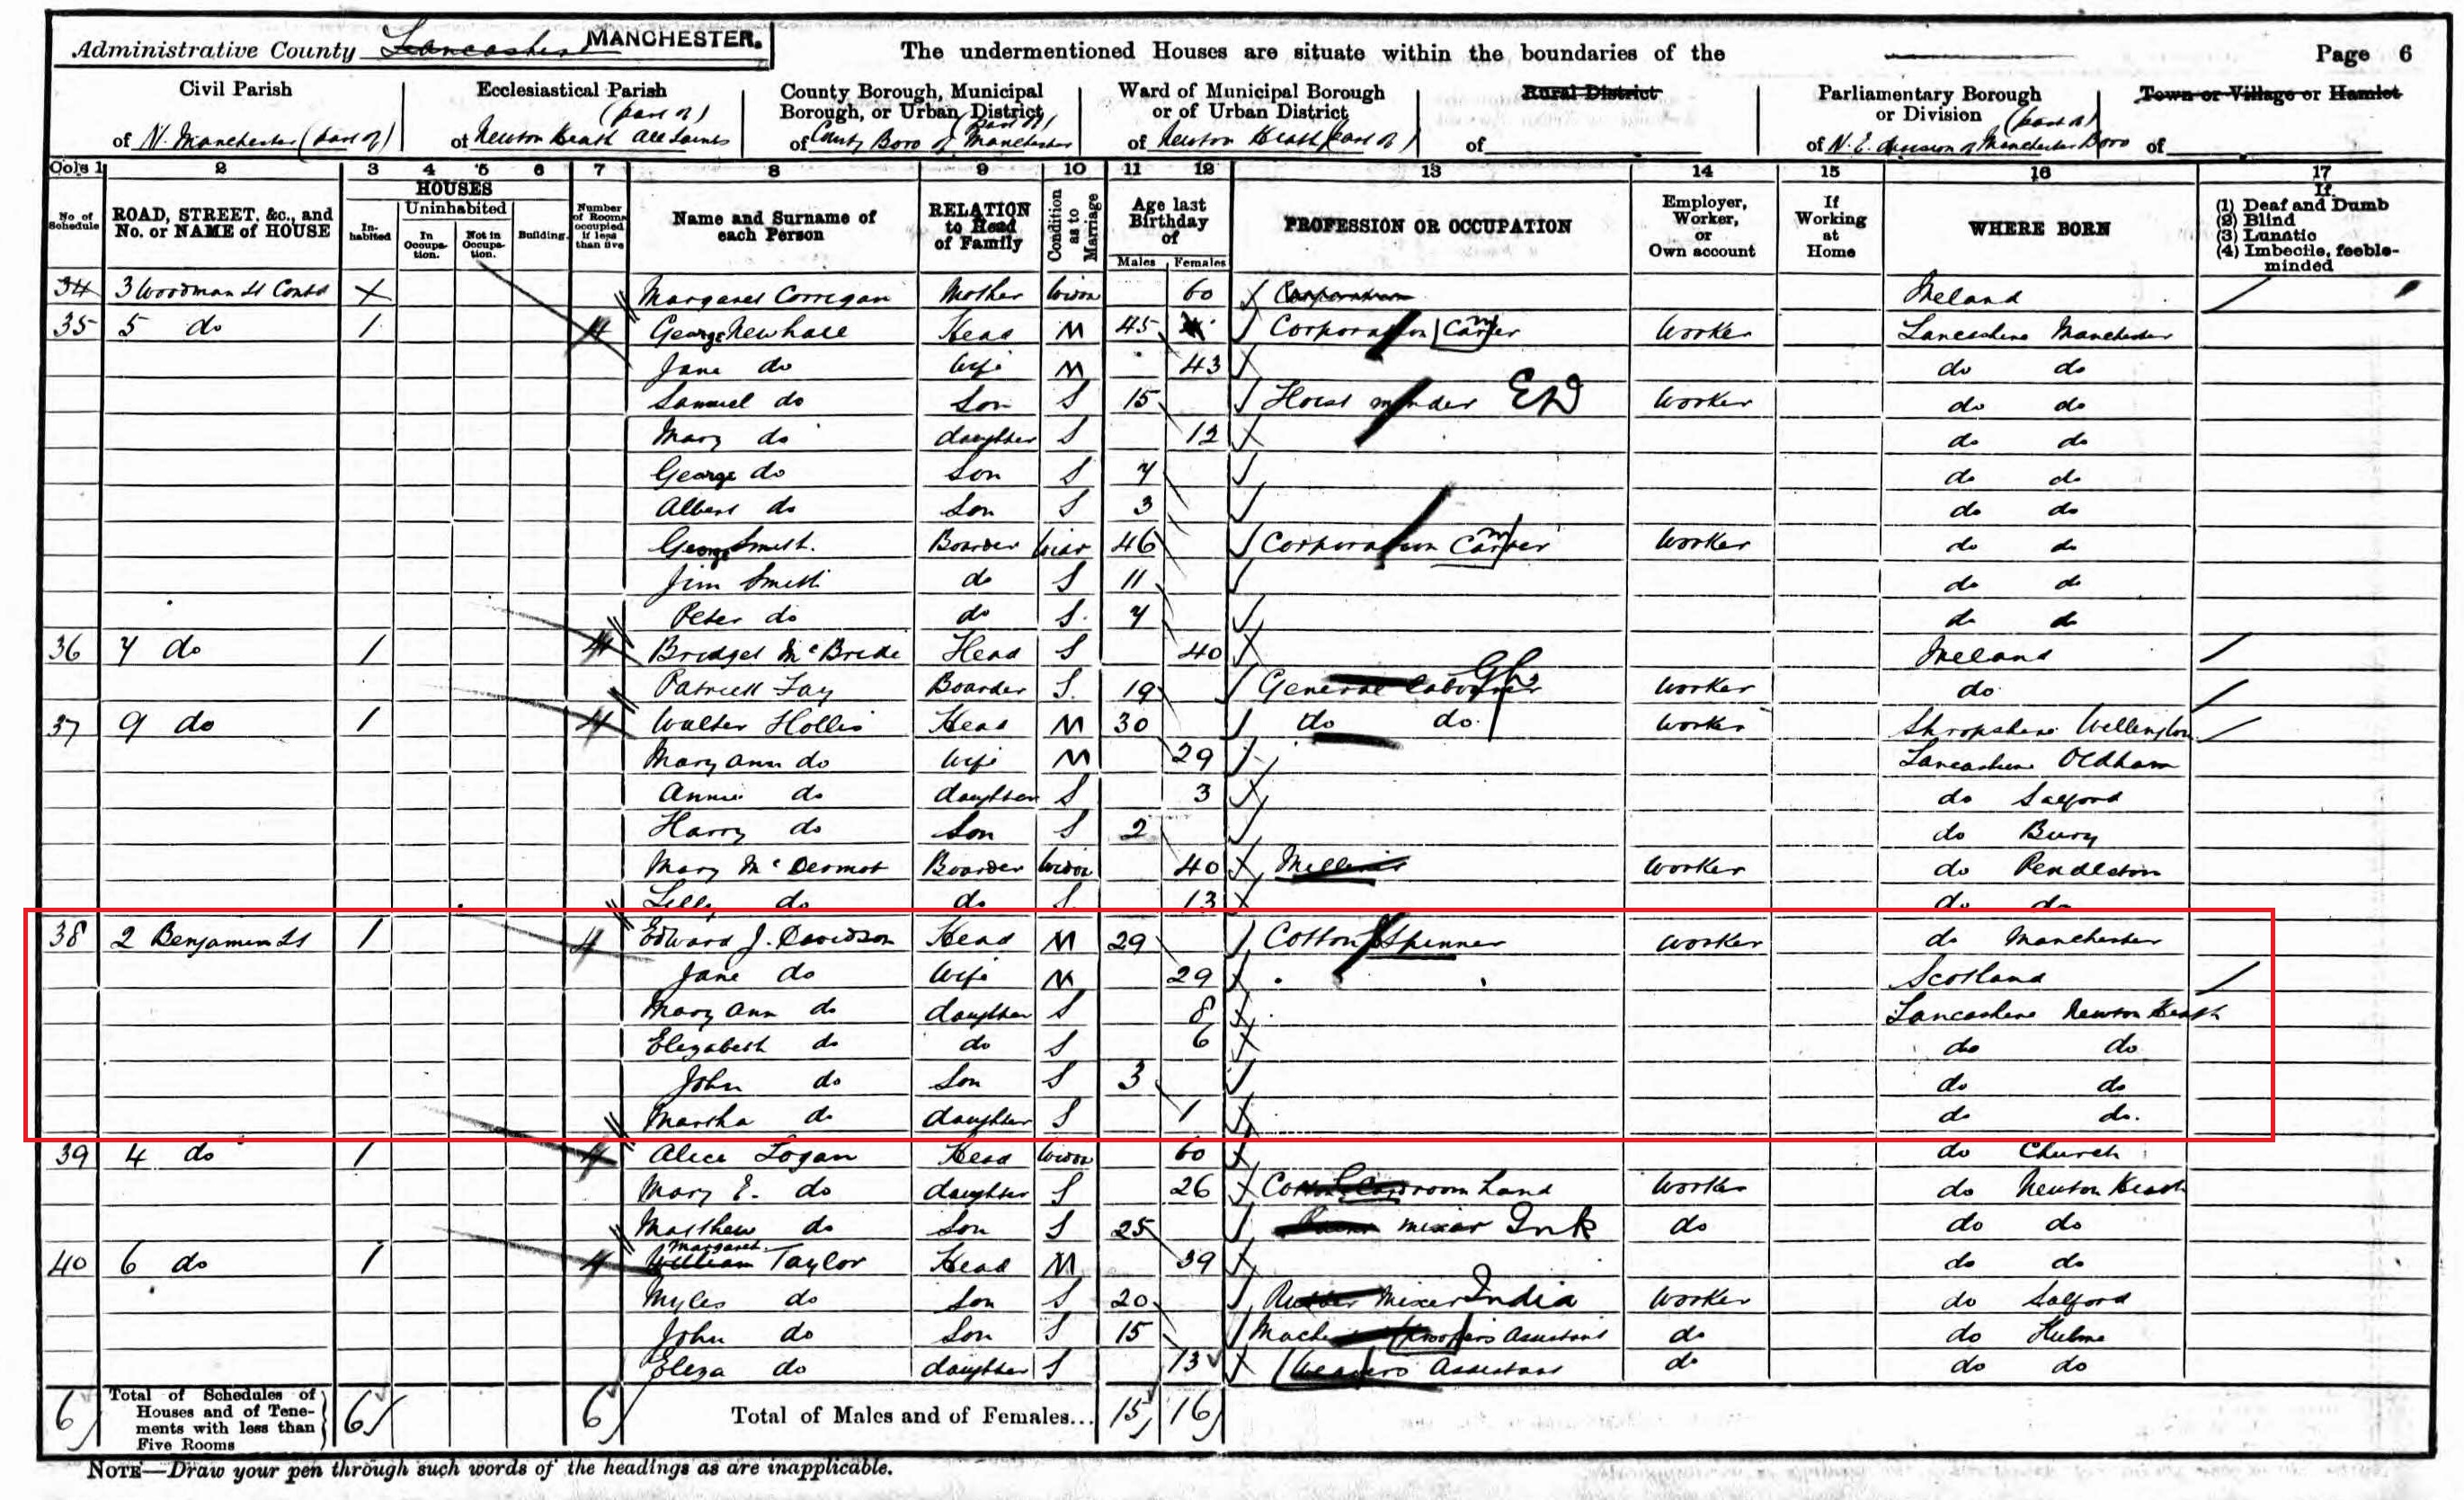 Administrative County Lancashire MANCHESTER. The undermentioned Houses are situate within the boundaries of the Page 6
Civil Parish of N. Manchester (part of)
Ecclesiastical Parish (part of) of Newton Heath All Saints
County Borough, Municipal Borough, or Urban District (part of) of County Boro of Manchester
Ward of Municipal Borough or of Urban District of Newton Heath (part of)
Rural District of
Parliamentary Borough or Division (part of) of N. E. division of Manchester Boro
Town or Village or Hamlet of
Cols 1 2 3 4 5 6 7 8 9 10 11 12 13 14 15 16 17
No. of Schedule
ROAD, STREET, &c., and No. or NAME of HOUSE
HOUSES
Inhabited
Uninhabited
In Occupation.
Not in Occupation.
Building.
Number of Rooms occupied if less than five
Name and Surname of each Person
RELATION to Head of Family
Condition as to Marriage
Age last Birthday of
Males Females
PROFESSION OR OCCUPATION
Employer, Worker, or Own account
If Working at Home
WHERE BORN
If
(1) Deaf and Dumb
(2) Blind
(3) Lunatic
(4) Imbecile, feeble-minded
34 3 Woodman St Contd X Margaret Corrigan Mother Widow 60 Corporation Ireland
35 5 do 1 4 George Newhall Head M 45 Corporation Carter Worker Lancashire Manchester
Jane do Wife M 43 do do
Samuel do Son S 15 Hoist minder Worker do do
Mary do daughter S 12 do do
George do Son S 7 do do
Albert do Son S 3 do do
George Smith. Boarder Widr 46 Corporation Carter Worker do do
Jim Smith do S 11 do do
Peter do do S. 7 do do
36 7 do 1 4 Bridget McBride Head S 40 Ireland
Patrick Fay Boarder S. 19 General Labourer Worker do
37 9 do 1 4 Walter Hollis Head M 30 do do Worker Shropshire Wellington
Mary Ann do Wife M 29 Lancashire Oldham
Annie do daughter S 3 do Salford
Harry do Son S 2 do Bury
Mary McDermot Boarder Widow 40 Worker do Pendleton
Lilly do do S 13 do do
38 2 Benjamin St 1 4 Edward J. Davidson Head M 29 Cotton Spinner Worker do Manchester
Jane do Wife M 29 Scotland
Mary Ann do daughter S 8 Lancashire Newton Heath
Elizabeth do do S 6 do do
John do Son S 3 do do
Martha do daughter S 1 do do.
39 4 do 1 4 Alice Logan Head Widow 60 do Church
Mary E. do daughter S 26 Cotton Cardroom hand Worker do Newton Heath
Matthew do Son S 25 mixer Ink do do do
Margaret
40 6 do 1 4 William Taylor Head M 39 do do
Myles do Son S 20 Rubber mixer India Worker do Salford
John do Son S 15 Assistant do do Hulme
Eliza do daughter S 13 Weavers Assistant do do do
6 Total of Schedules of Houses and of Tenements with less than Five Rooms 6 6 Total of Males and of Females... 15 16
NOTE—Draw your pen through such words of the headings as are inapplicable.